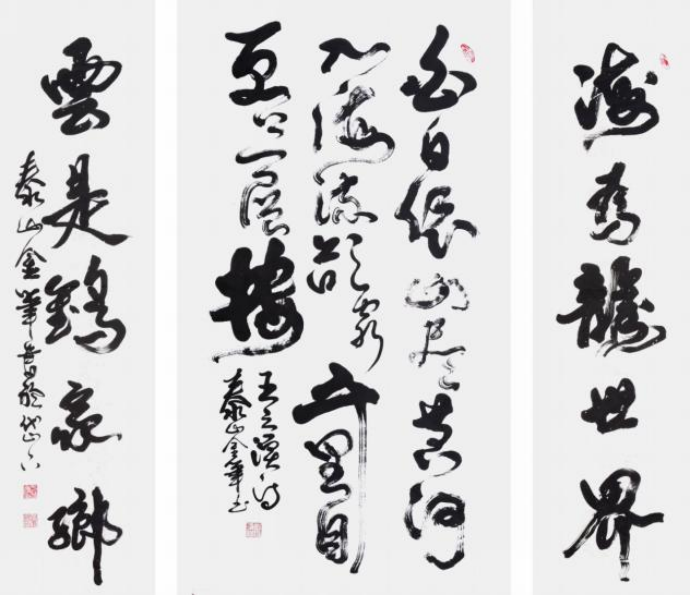 海為龍世界
白日依山尽黄河
入海流欲窮千里目
更上一層樓
王之渙詩
泰山金筆书
雲是鶴家鄉
泰山金筆書於岱下